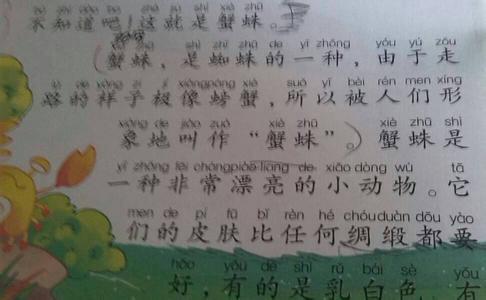 不知道吧！这就是蟹蛛。
xiè zhū shì zhī zhū de yī zhǒng yóu yú zǒu
（蟹蛛，是蜘蛛的一种，由于走
lù de yàng zi jí xiàng páng xiè suǒ yǐ bèi rén men xíng
路的样子极像螃蟹，所以被人们形
xiàng de jiào zuò xiè zhū xiè zhū shì
象地叫作“蟹蛛”。）蟹蛛是
yī zhǒng fēi cháng piào liang de xiǎo dòng wù tā
一种非常漂亮的小动物。它
men de pí fū bǐ rèn hé chóu duàn dōu yào
们的皮肤比任何绸缎都要
hǎo yǒu de shì rǔ bái sè yǒu
好，有的是乳白色，有